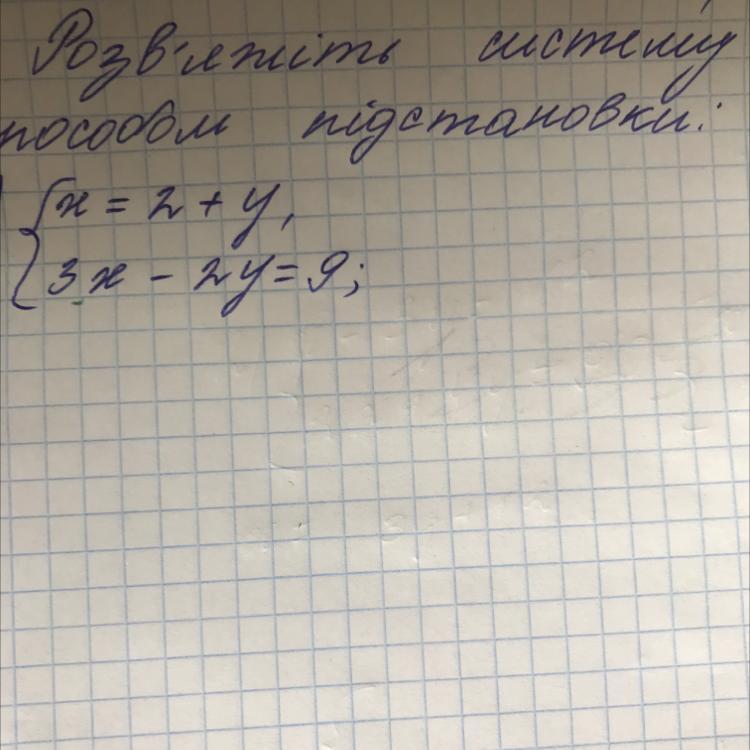 Розв'яжіть систему
пособом підстановки:
{x = 2 + y,
3x - 2y = 9;